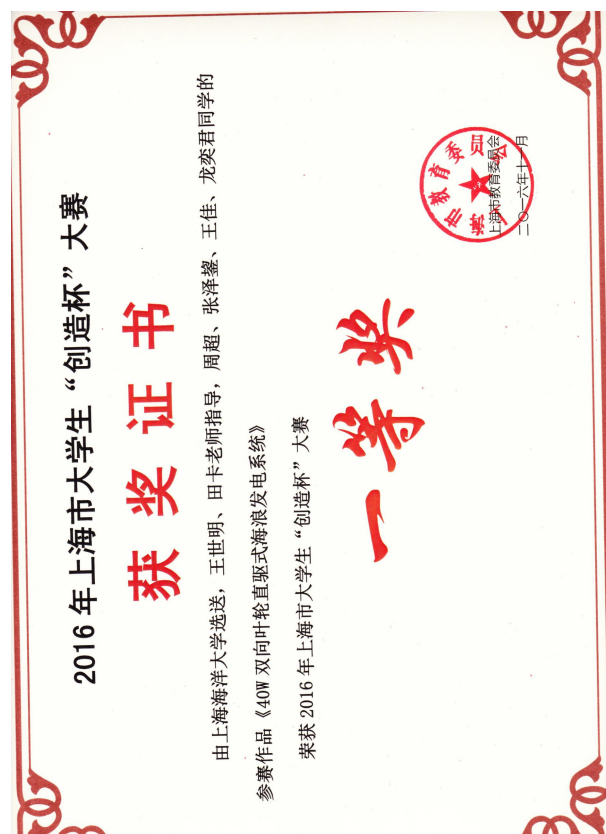 2016年上海市大学生“创造杯”大赛
获奖证书
由上海海洋大学选送，王世明、田卡老师指导，周超、张泽鋆、王佳、龙奕君同学的
参赛作品《40W双向叶轮直驱式海浪发电系统》
荣获2016年上海市大学生“创造杯”大赛
一等奖
上海市教育委员会
上海市教育委员会
二〇一六年十一月